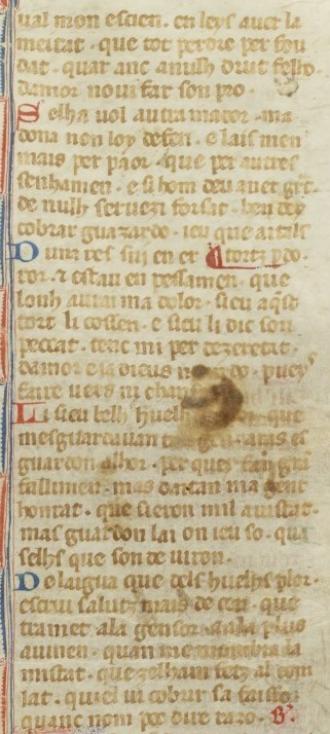 ual mon escien. en leys auer la
meitat. que tot perdre per fou
dat. quar anc a nulh drut felho
damor no ui far son pro.
Selha uol autra mador. ma
dona non loy defen. e lais men
mais per paor. que per autres
senhamen. e si hom deu auer grat
de nulh seruezi forsat. ben dey
cobrar guazardo. ieu que
Duna res sui en er a tortz p do.
tor. ⁊ estau en pessamen. que
lonh aurai ma dolor. sieu aqst
tort li cossen. e sieu li dic son
peccat. tenc mi per dezeretat.
damor e ia dieus no pueys
faire uers ni chan
Li sieu belh huelh que
mesguardauan tan gen. aras es
guardon alhor. per que fan gran
fallimen. mas daitan ma gent
hontat. que sieron mil aiustat.
mas guardon lai on ieu so. que
selhs que son de uiron.
De laigua que dels huelhs plor.
escriu salutz mais de cen. que
tramet ala gensor. ⁊ ala plus
auinen. quan me membra la
mistat. que zelham fetz al com
iat. quiel ui cobrir sa faisso
quanc nom poc dire razo. B.